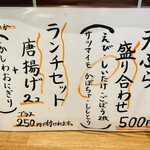 天ぷら
盛り合わせ
500円
(えび、しいたけ、ごぼう2枚
サツマイモ、かぼちゃ、ししとう)
ランチセット
唐揚げ2コ
+
かしわおにぎり
プラス
250円で付けれます。